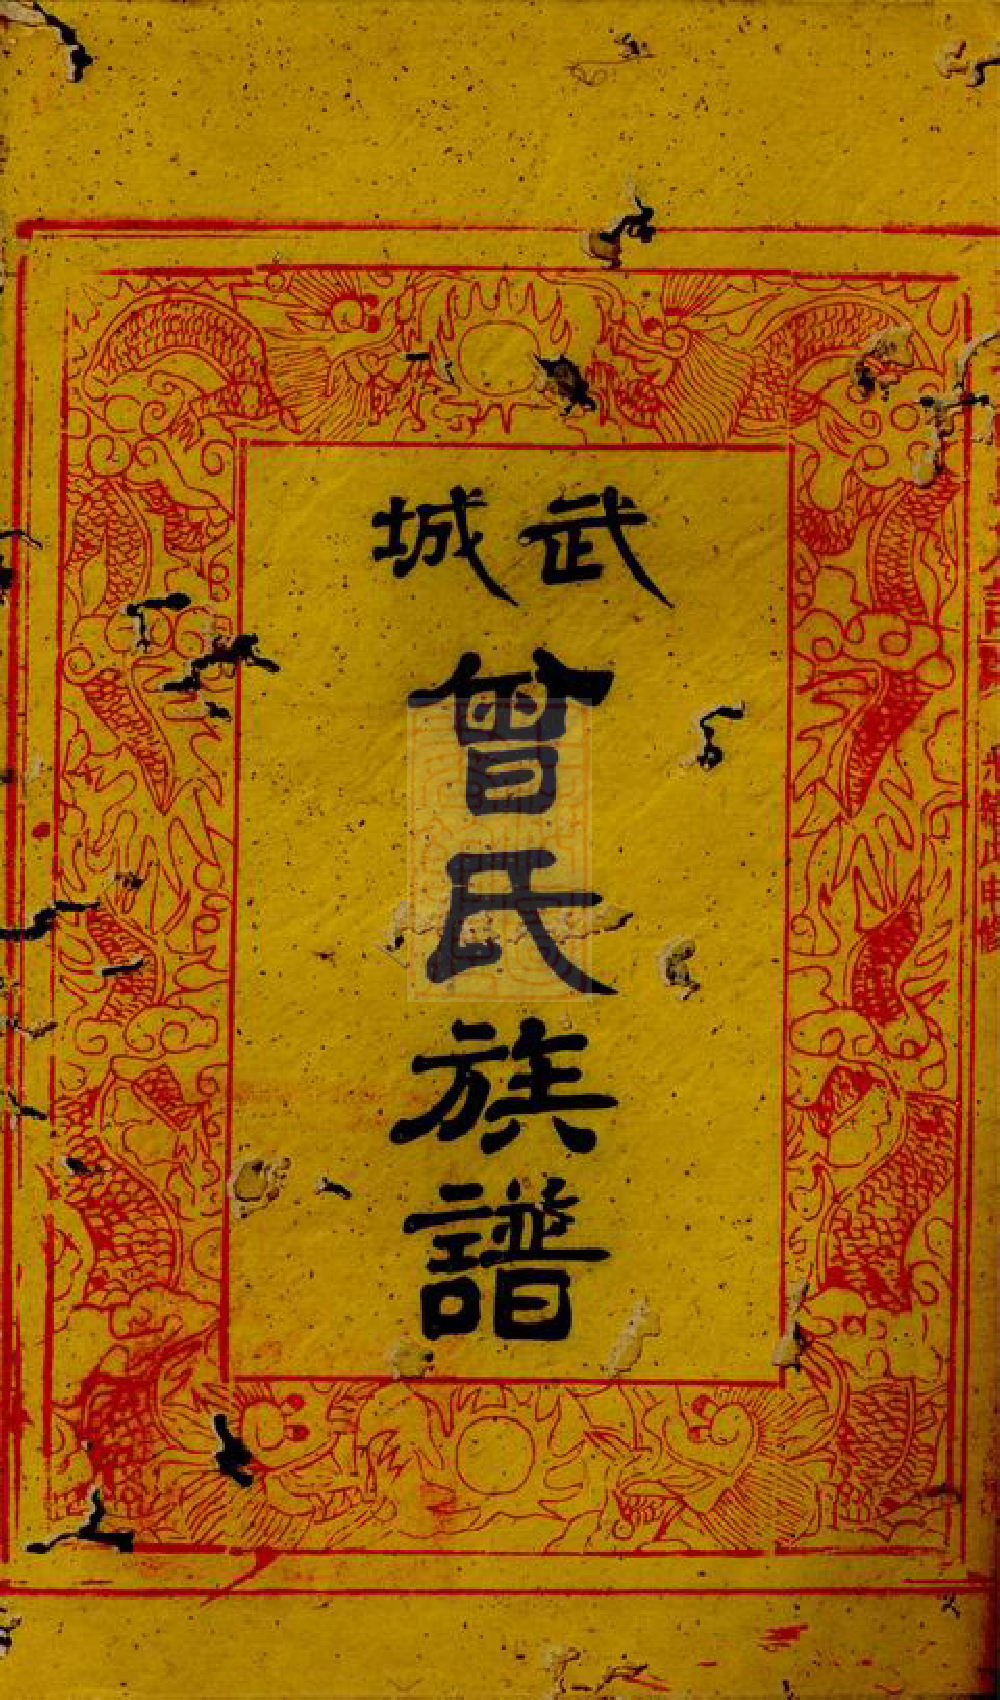 武城
曾氏族譜